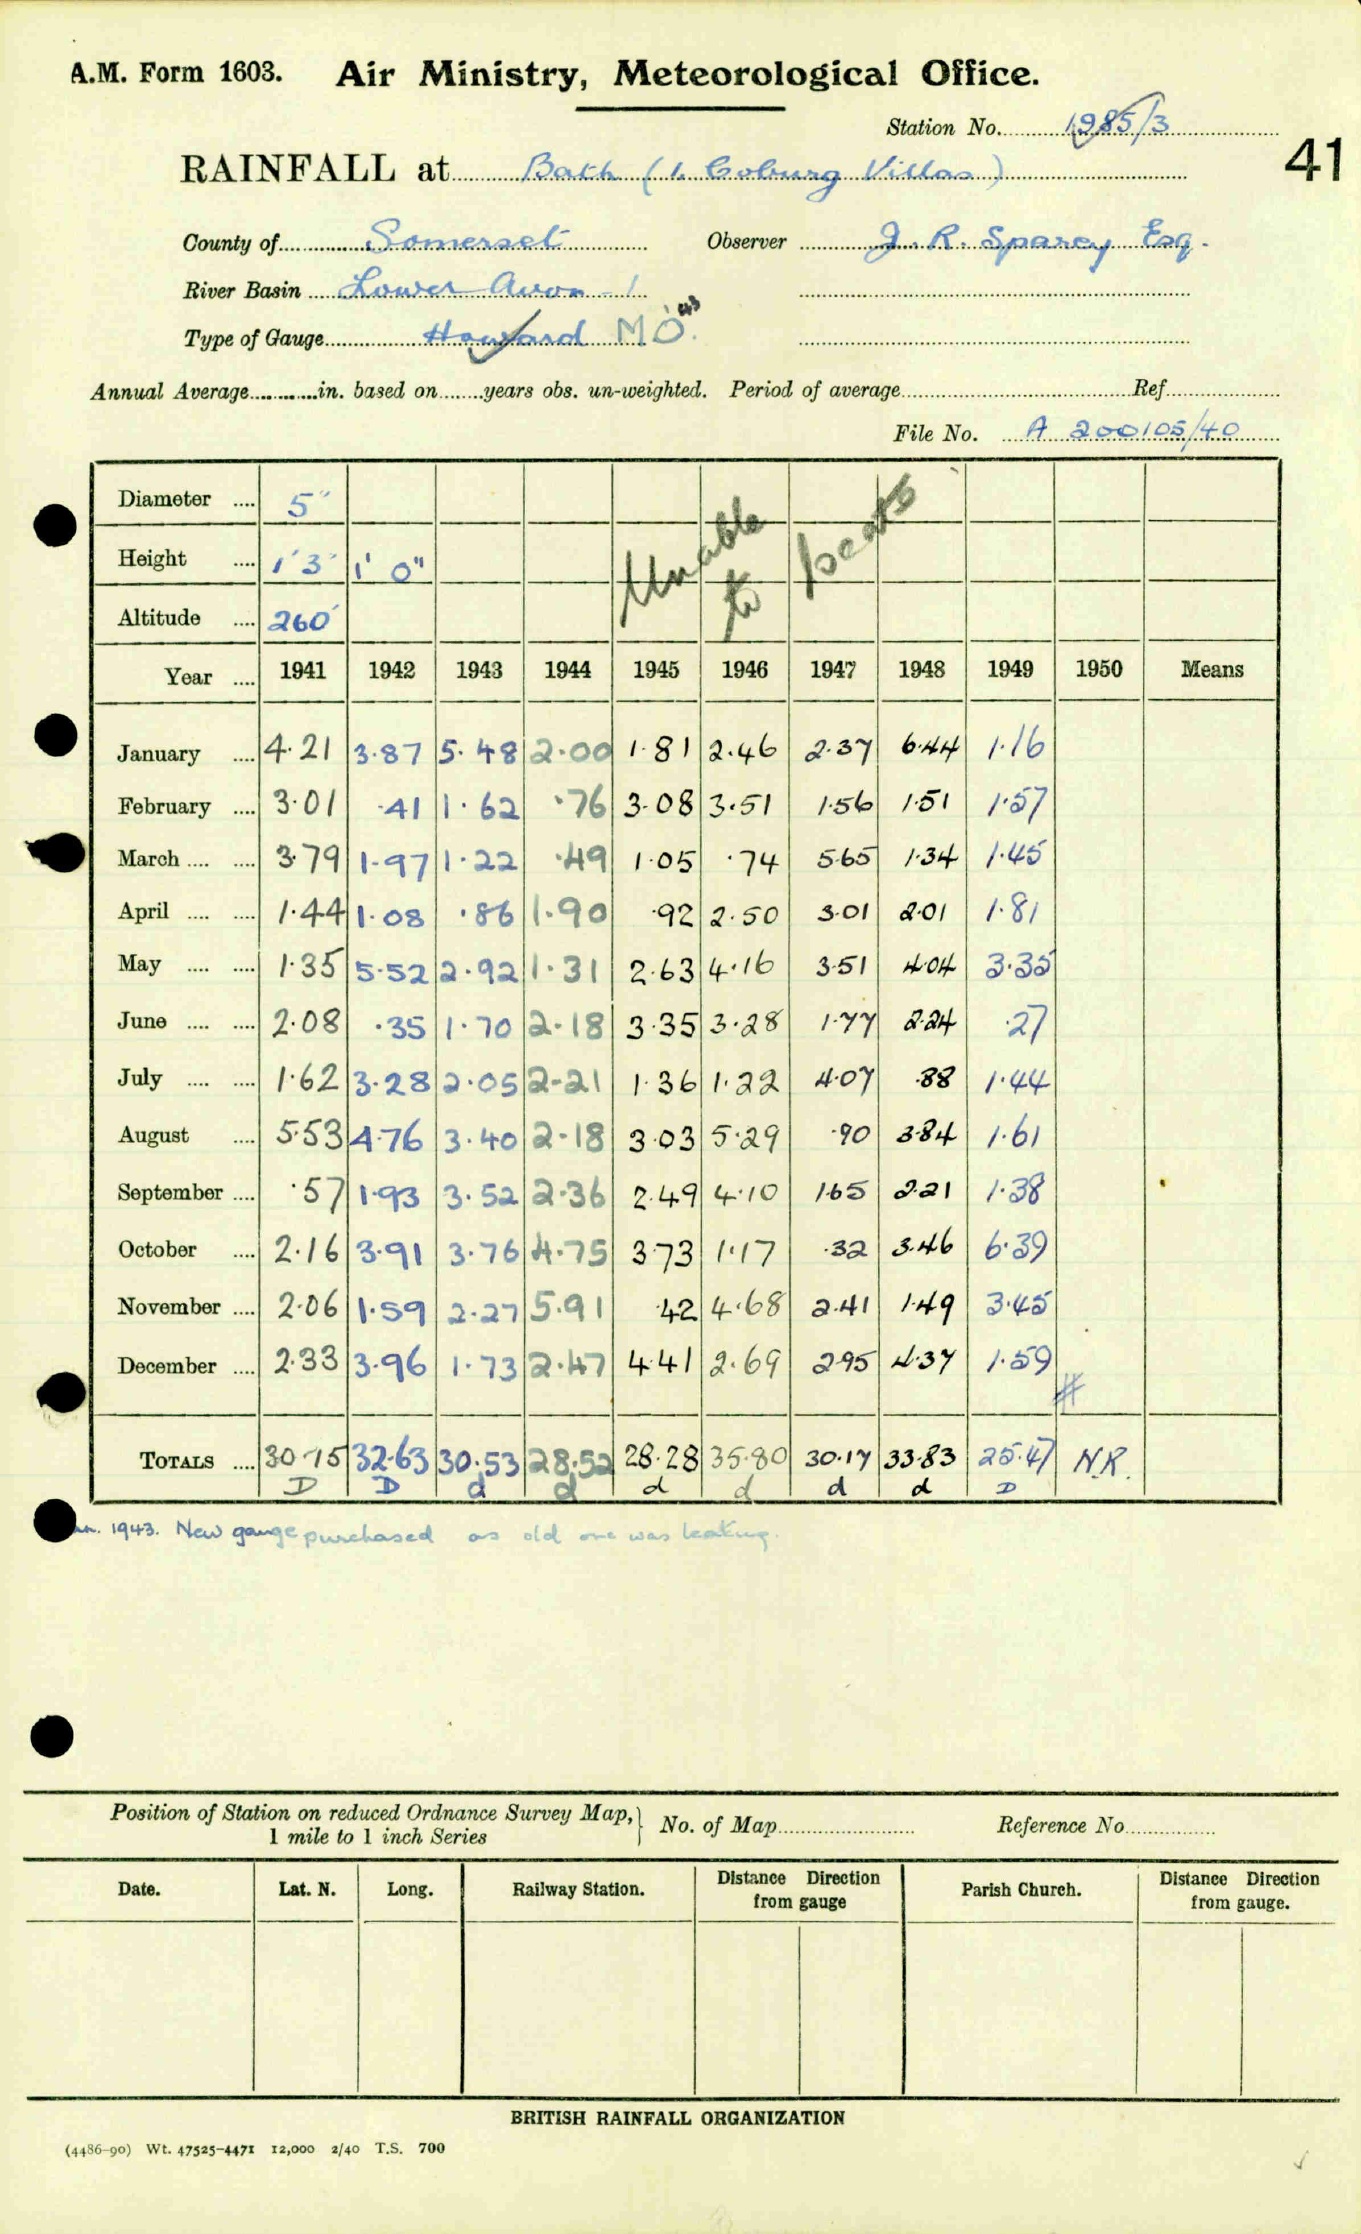 A.M. Form 1603. Air Ministry, Meteorological Office.
Station No. 1985/3
41
RAINFALL at Bath (1. Coburg Villas)
County of Somerset Observer J. R. Sparey Esq.
River Basin Lower Avon - 1
Type of Gauge Howard MO '43
Annual Average in. based on years obs. un-weighted. Period of average Ref.
File No. A 200105/40
Diameter 5"
Height 1'3" 1' 0"
Altitude 260'
Unable to locate
Year 1941 1942 1943 1944 1945 1946 1947 1948 1949 1950 Means
January 4.21 3.87 5.48 2.00 1.81 2.46 2.37 6.44 1.16
February 3.01 .41 1.62 .76 3.08 3.51 1.56 1.51 1.57
March 3.79 1.97 1.22 .49 1.05 .74 5.65 1.34 1.45
April 1.44 1.08 .86 1.90 .92 2.50 3.01 2.01 1.81
May 1.35 5.52 2.92 1.31 2.63 4.16 3.51 4.04 3.35
June 2.08 .35 1.70 2.18 3.35 3.28 1.77 2.24 .27
July 1.62 3.28 2.05 2.21 1.36 1.22 4.07 .88 1.44
August 5.53 4.76 3.40 2.18 3.03 5.29 .90 3.84 1.61
September .57 1.93 3.52 2.36 2.49 4.10 1.65 2.21 1.38
October 2.16 3.91 3.76 4.75 3.73 1.17 .32 3.46 6.39
November 2.06 1.59 2.27 5.91 .42 4.68 2.41 1.49 3.45
December 2.33 3.96 1.73 2.47 4.41 2.69 2.95 4.37 1.59
#
TOTALS 30.15 32.63 30.53 28.52 28.28 35.80 30.17 33.83 25.47 N.R.
D D d d d d d d D
1943. New gauge purchased as old one was leaking.
Position of Station on reduced Ordnance Survey Map, } No. of Map Reference No
1 mile to 1 inch Series
Date. Lat. N. Long. Railway Station. Distance Direction from gauge Parish Church. Distance Direction from gauge.
BRITISH RAINFALL ORGANIZATION
(4486-90) Wt. 47525-4471 12,000 2/40 T.S. 700